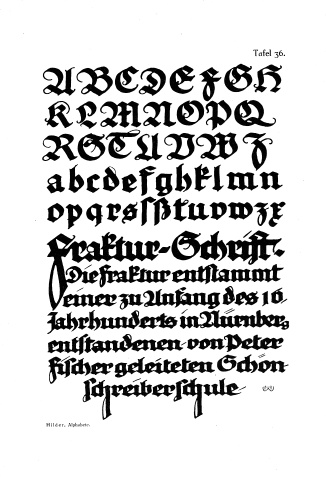 Tafel 36.
ABCDEFGH
KLMNOPQ
RSTUVWZ
abcdefghklmn
opqrsſßtuvwzx
Fraktur-Schrift.
Die Fraktur entſtammt
einer zu Anfang des 16
Jahrhunderts in Nürnberg
entſtandenen von Peter
Fiſcher geleiteten Schön
ſchreiberſchule
Alphabete.